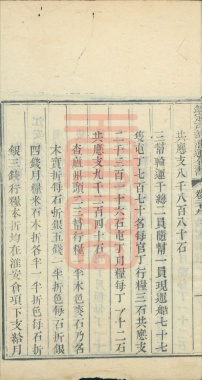 共應支八千八百八十石
三幫輪運千總一員隨幫一員現運船七十七
隻屯丁七百七十名每官丁行糧三石共應支
二千三百一十六石屯丁月糧每丁一十二石
共應支九千二百四十石
查廬州頭二三幫行糧一半本色麥石乃各
本實折每石折銀五錢一半折色每石折銀
四錢月糧米石本折各半一半折色每石折
銀三錢行糧本折均在淮安倉項下支給月